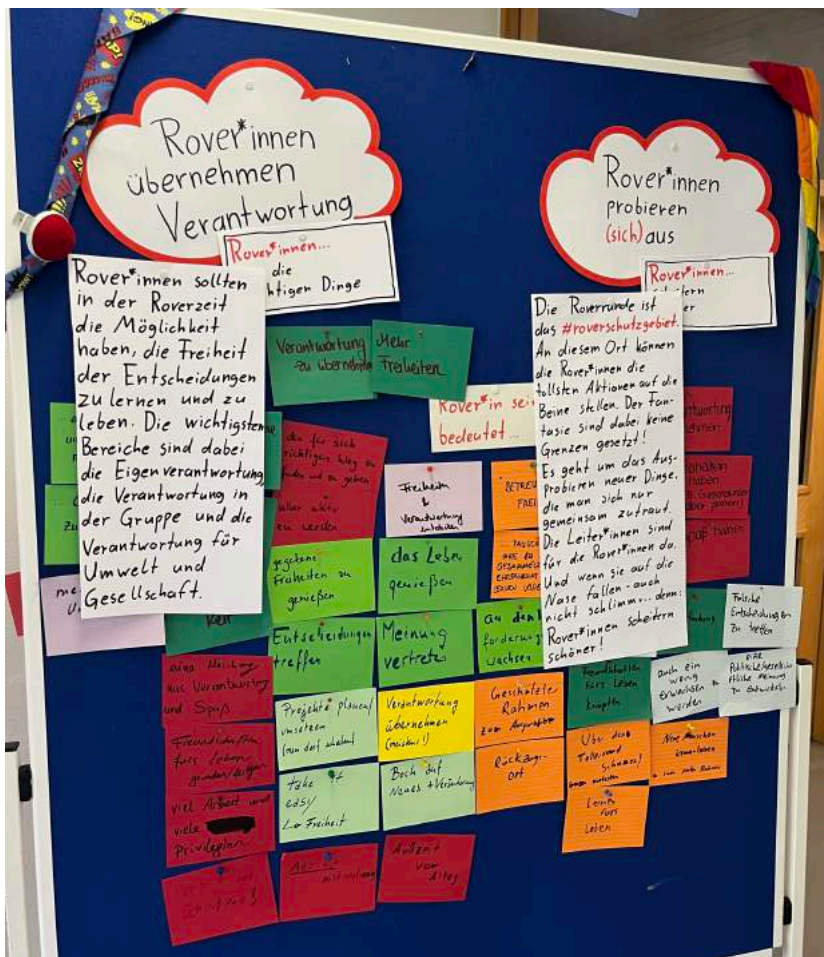 Rover*innen
übernehmen
Verantwortung
Rover*innen...
die
htigen Dinge
Rover*innen sollten
in der Roverzeit
die Möglichkeit
haben, die Freiheit
der Entscheidungen
zu lernen und zu
leben. Die wichtigsten
Bereiche sind dabei
die Eigenverantwortung,
die Verantwortung in
der Gruppe und die
Verantwortung für
Umwelt und
Gesellschaft.
Rover*innen
probieren
(sich) aus
Rover*innen...
Die Roverrunde ist
das #roverschutzgebiet.
An diesem Ort können
die Rover*innen die
tollsten Aktionen auf die
Beine stellen. Der Fan-
tasie sind dabei keine
Grenzen gesetzt!
Es geht um das Aus-
probieren neuer Dinge,
die man sich nur
gemeinsam zutraut.
Die Leiter*innen sind
für die Rover*innen da.
Und wenn sie auf die
Nase fallen - auch
nicht schlimm... denn:
Rover*innen scheitern
schöner!
Verantwortung
zu übernehmen
Mehr
Freiheiten
Rover*in sei
bedeutet...
den für sich
richtigen Weg zu
finden und zu gehen
Freiheiten
&
Verantwortung
gegebene
Freiheiten zu
genießen
das Leben
genießen
Entscheidungen
treffen
Meinung
vertreten
an den
forderung
wachsen
Falsche
Entscheidungen
zu treffen
eine Mischung
aus Verantwortung
und Spaß
Projekte planen/
umsetzen
Verantwortung
übernehmen
(meistens!)
Geschützter
Rahmen
zum Ausprobieren
Freundschaften
fürs Leben
knüpfen
auch ein
wenig
erwachsen
werden
eine
zu entwickeln
Freundschaften
fürs Leben
take it
easy
Freiheit
Bock auf
Neues + Veränderung
Rückzugs-
ort
Über den
Tellerrand
schauen!
viel Arbeit und
viele
Privilegien
Lernen
fürs
Leben
Auszeit
vom
Alltag